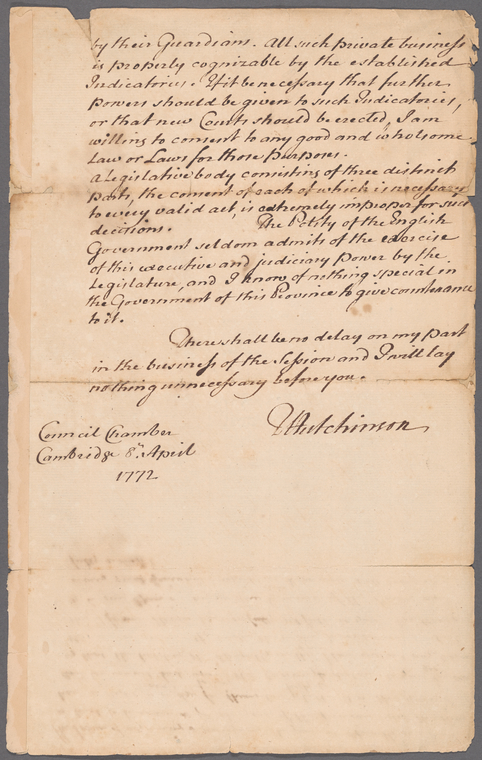 by their Guardians. All such private business
is properly cognizable by the established
Judicatories. If it be necessary that further
powers should be given to such Judicatories,
or that new Courts should be erected, I am
willing to consent to any good and wholsome
Law or Laws for those purposes.
a Legislative body consisting of three distinct
parts, the consent of each of which is necessary
to every valid act, is extremely improper for such
decisions. The Polity of the English
Government seldom admits of the exercise
of this executive and judiciary power by the
Legislature, and I know of nothing special in
the Government of this Province to give countenance
to it.
There shall be no delay on my part
in the business of the Session and I will lay
nothing unnecessary before you.
THutchinson
Council Chamber
Cambridge 8th April
1772